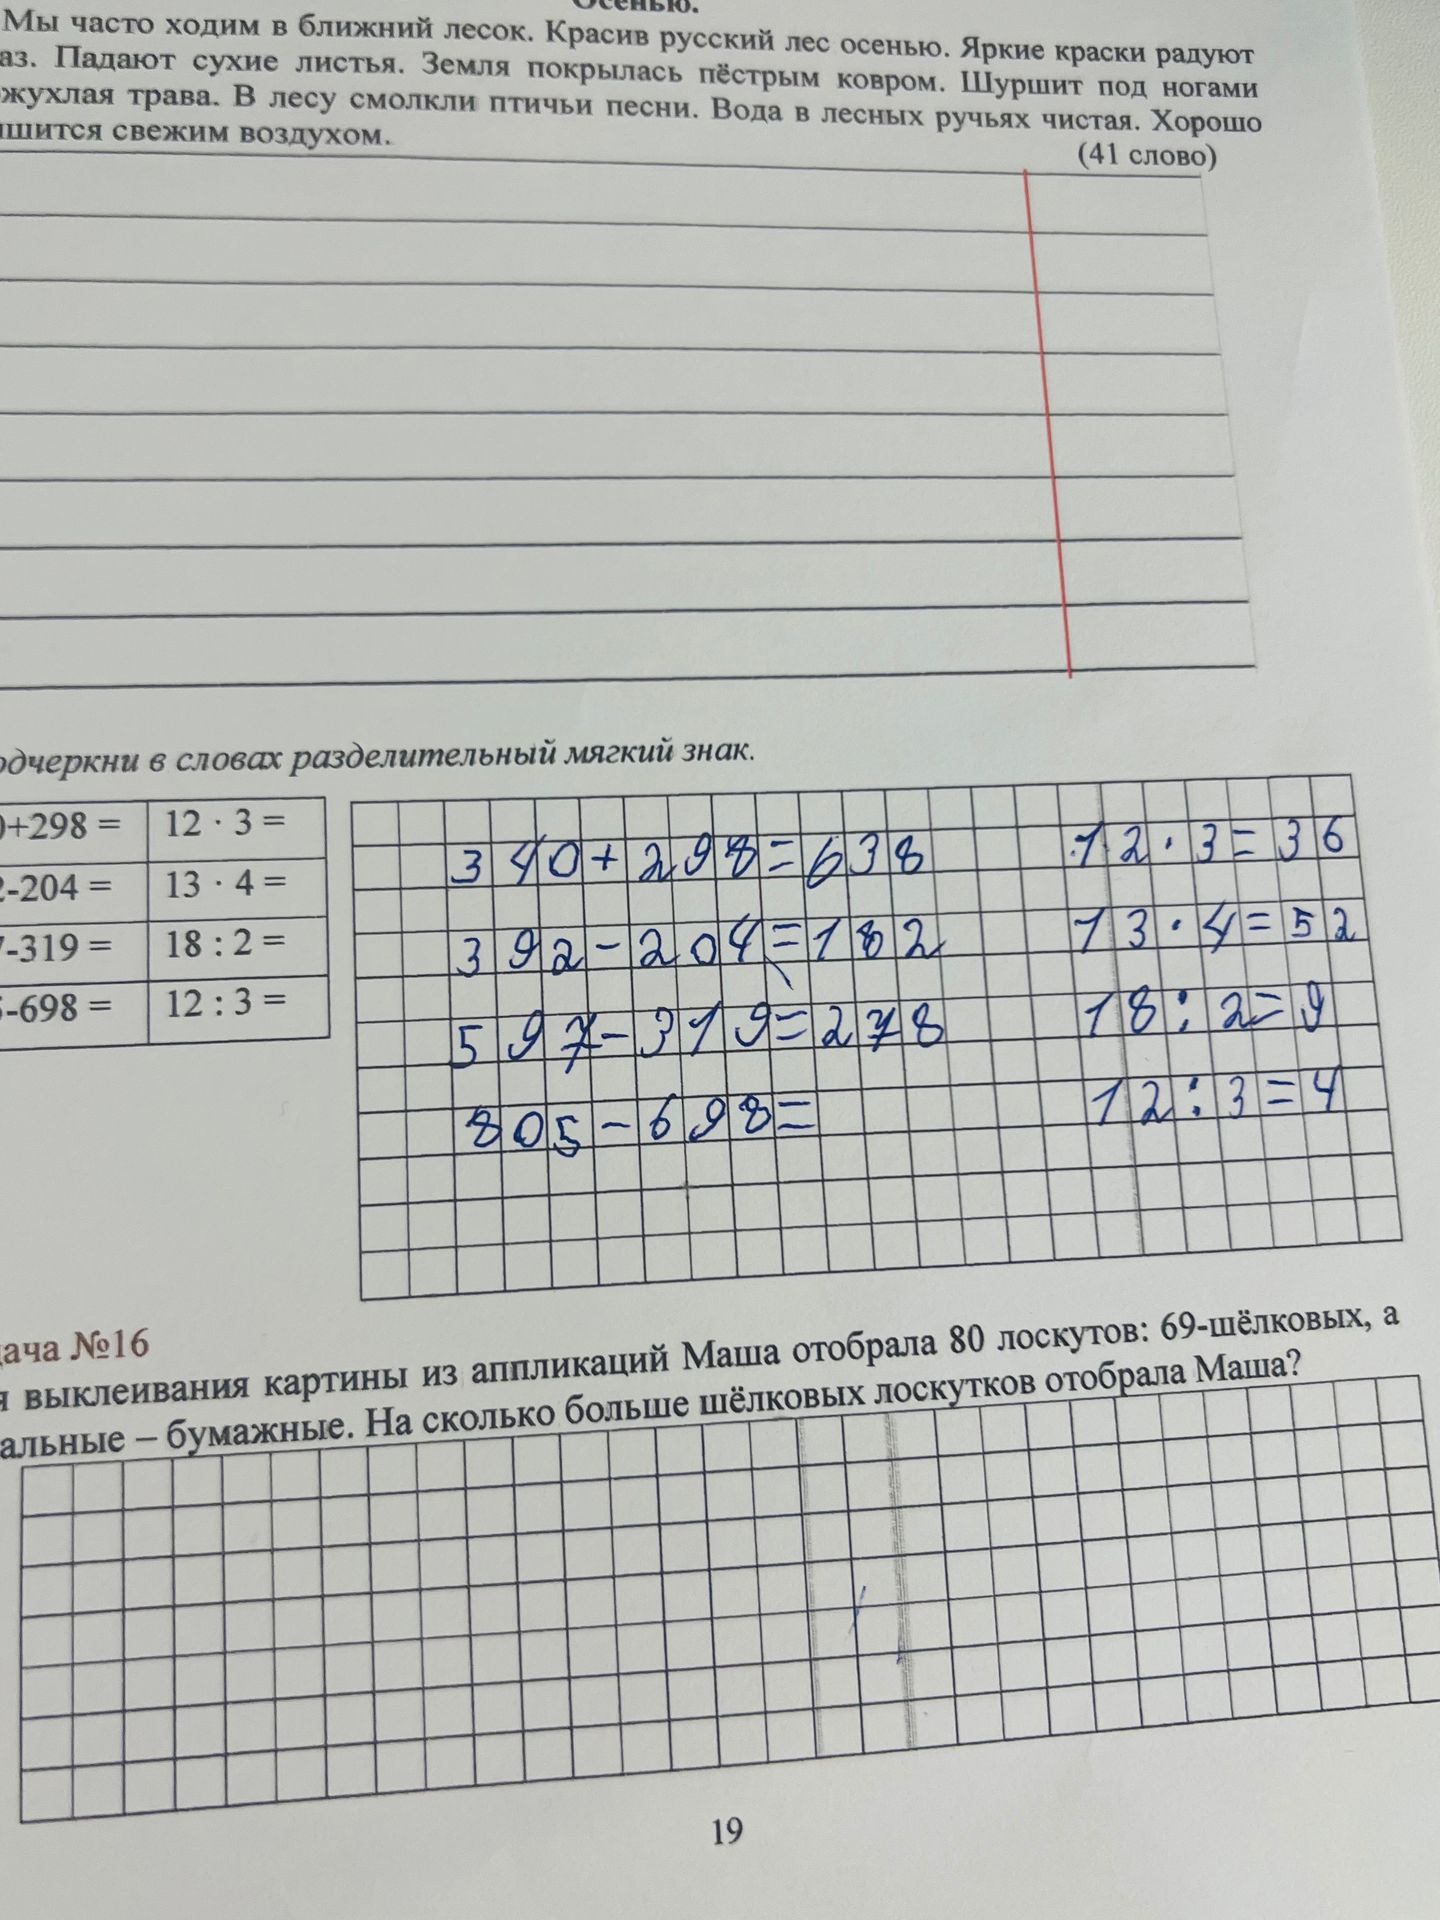 Осенью.
Мы часто ходим в ближний лесок. Красив русский лес осенью. Яркие краски радуют
аз. Падают сухие листья. Земля покрылась пёстрым ковром. Шуршит под ногами
жухлая трава. В лесу смолкли птичьи песни. Вода в лесных ручьях чистая. Хорошо
шится свежим воздухом.
(41 слово)
одчеркни в словах разделительный мягкий знак.
0+298 = 12 · 3 =
2-204 = 13 · 4 =
7-319 = 18 : 2 =
5-698 = 12 : 3 =
340+298=638 12·3=36
392-204=182 13·4=52
597-319=278 18:2=9
805-698= 12:3=4
дача №16
я выклеивания картины из аппликаций Маша отобрала 80 лоскутов: 69-шёлковых, а
альные – бумажные. На сколько больше шёлковых лоскутков отобрала Маша?
19